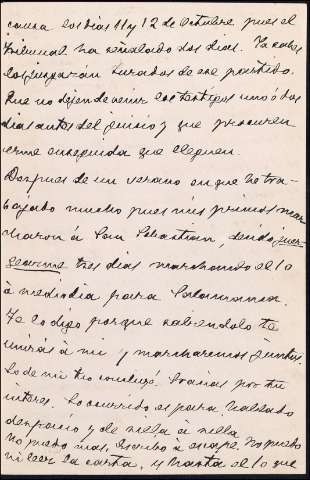 causa los días 11 y 12 de Octubre pues el
tribunal ha señalado dos días. Ya sabes
los juzgarán Jurados de ese partido.
Que no dejen de venir los testigos uno ó dos
días antes del juicio y que procuren
verme enseguida que lleguen.
Despues de un verano en que he tra-
bajado mucho pues mis primos mar
charon á San Sebastian, decido juer-
gearme tres días marchando el 10
á mediodia para Salamanca.
Te lo digo porque sabiendolo te
unirás á mi y marcharemos juntos.
Lo de mi tio concluyó. Gracias por tu
interes. Lo ocurrido es para hablado
despacio y de silla á silla
No puedo mas, escribo á escape. No puedo
ni leer la carta, y hasta el 10 que